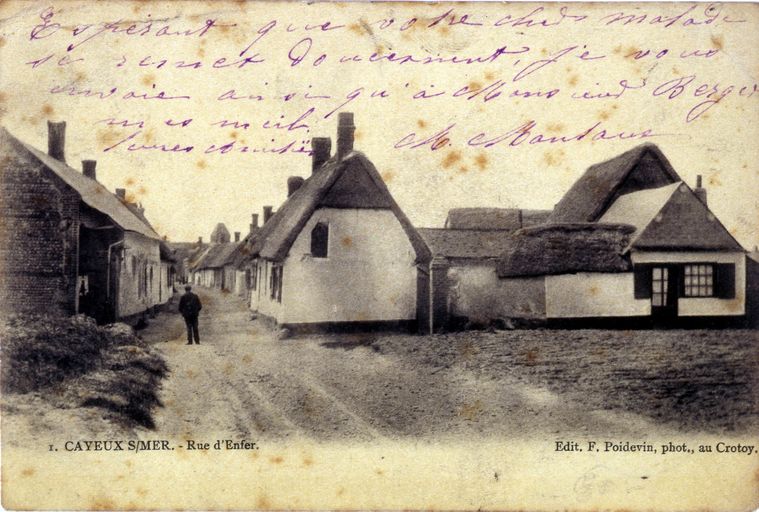 Espérant que votre chère malade
se remet doucement, je vous
envoie ainsi qu'à Monsieur Berger
mes meill
amitiés M.
1. CAYEUX S/MER. - Rue d'Enfer.
Edit. F. Poidevin, phot., au Crotoy.